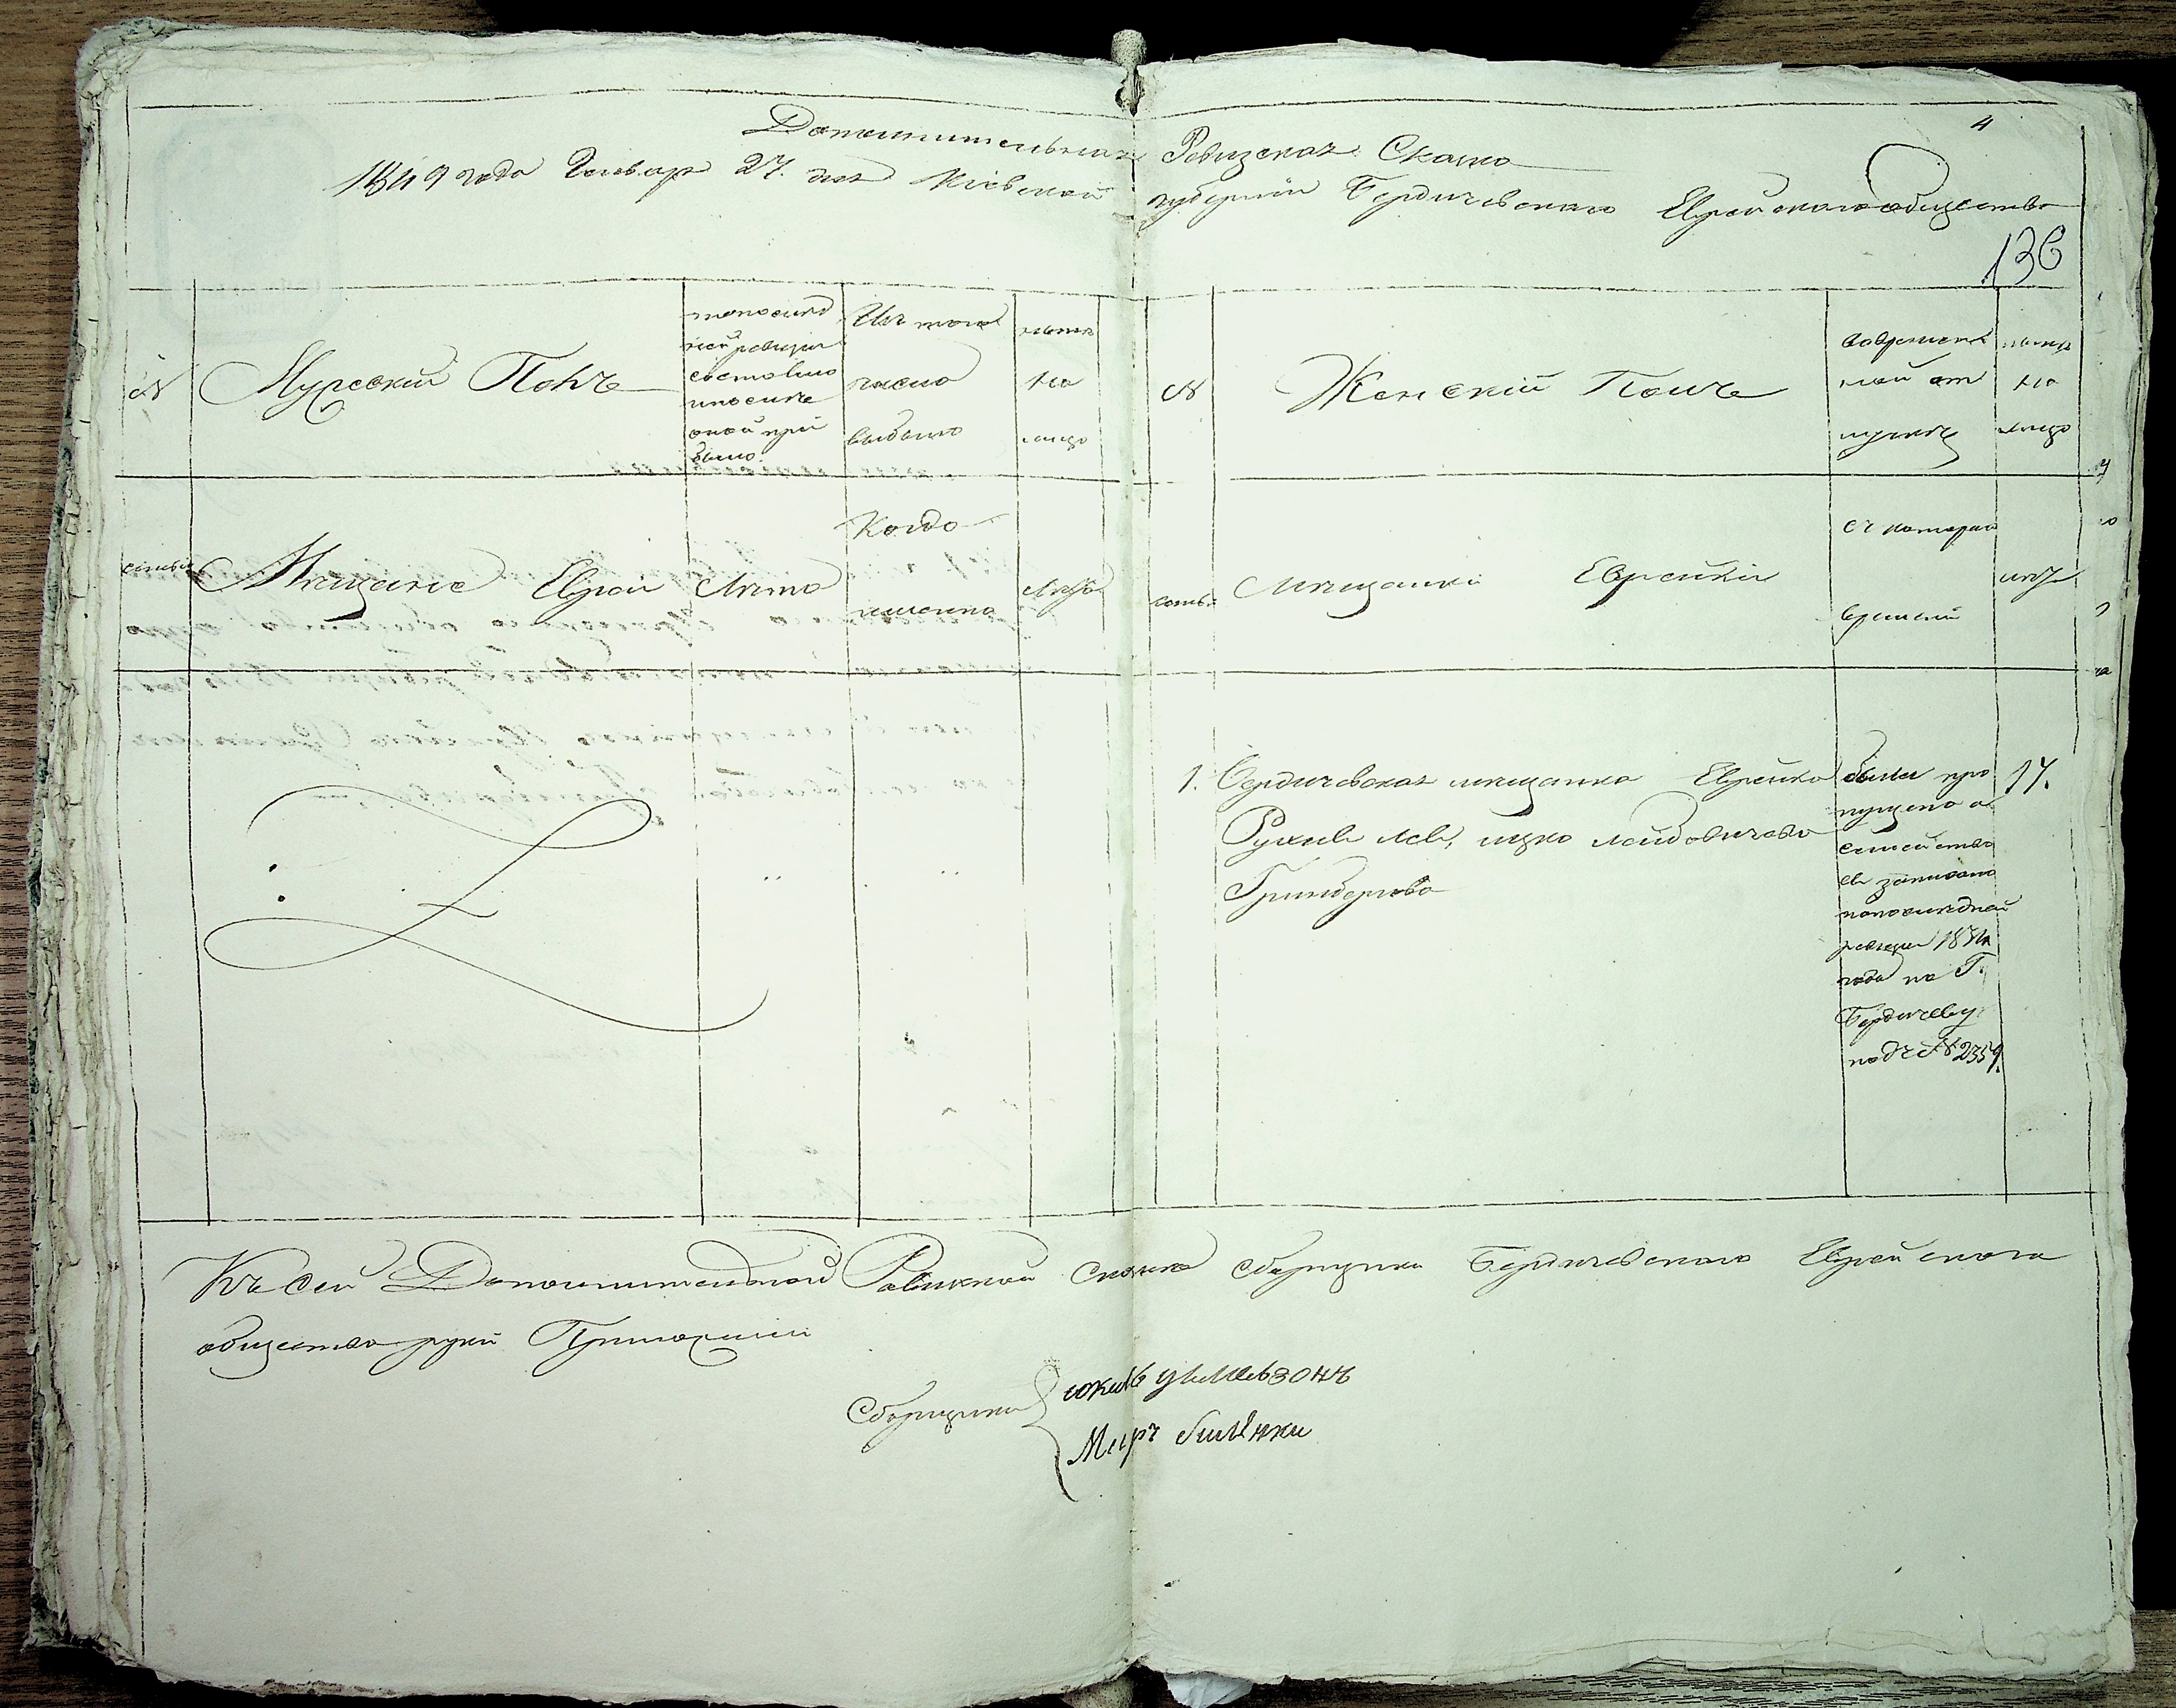 4
Дополнительная Ревизская Сказка
1849 года Генваря 27. дня Кіевской губерніи Бердичевскаго Еврейскаго общества
136
№
Мужескій Полъ
по послед
ней ревизіи
состояло
и после
оной при
было.
Изъ того
числа
выбыло
ныне
на
лицо
№
Женскій Полъ
во времен
ной от
лучке
ныне
на
лицо
семьи
Мещане Евреи
Лета
Когда
именно
Лета
семьи
Мещанки Еврейки
съ котораго
времени
лет
1. Бердичевская мещанка Еврейка
Рухля Ицко
Гринбергова
была про
пущена а
семейство
ея записано
по последней
ревизіи 1834
года по Г.
Бердичеву
подъ № 2359.
17.
Къ сей Дополнительной Ревизкой сказке сборщики Бердичевскаго Еврейскаго
общества руки Приложили
Сборщики